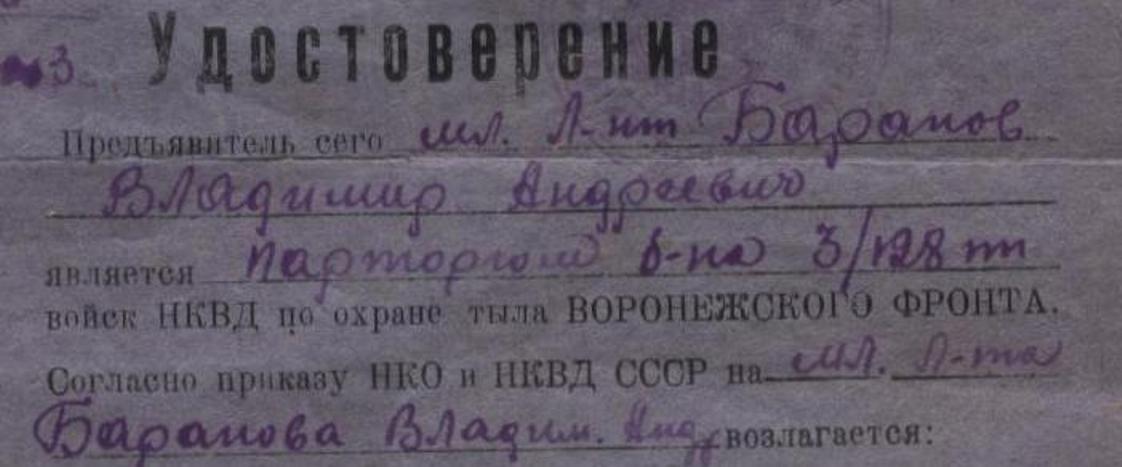 Удостоверение
№3
Предъявитель сего мл. Л-нт Баранов
Владимир Андреевич
является парторгом б-на 3/128 пп
войск НКВД по охране тыла ВОРОНЕЖСКОГО ФРОНТА.
Согласно приказу НКО и НКВД СССР на мл. Л-та
Баранова Владим. Анд возлагается: